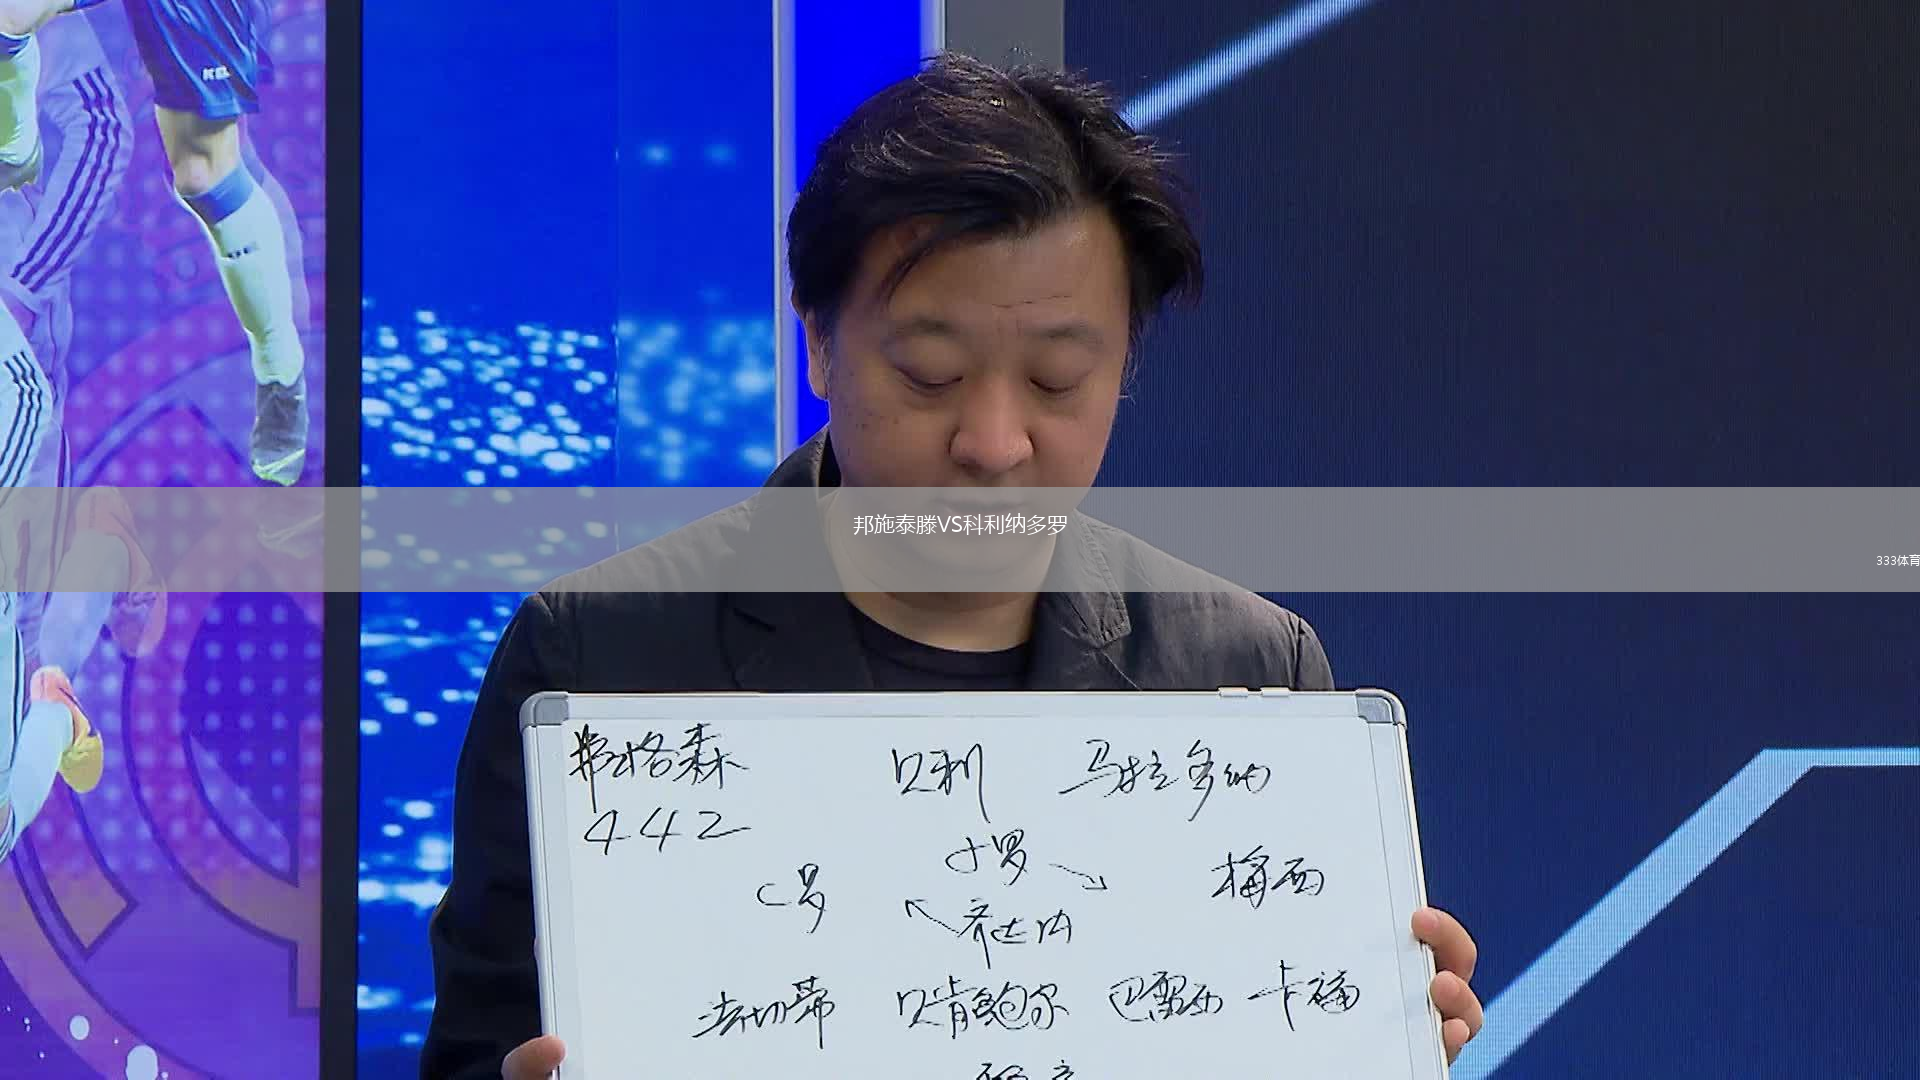 邦施泰滕VS科利纳多罗
333体育
弗格森 贝利 马拉多纳
442
小罗
C罗 梅西
齐达内
法切蒂 贝肯鲍尔 巴雷西 卡福